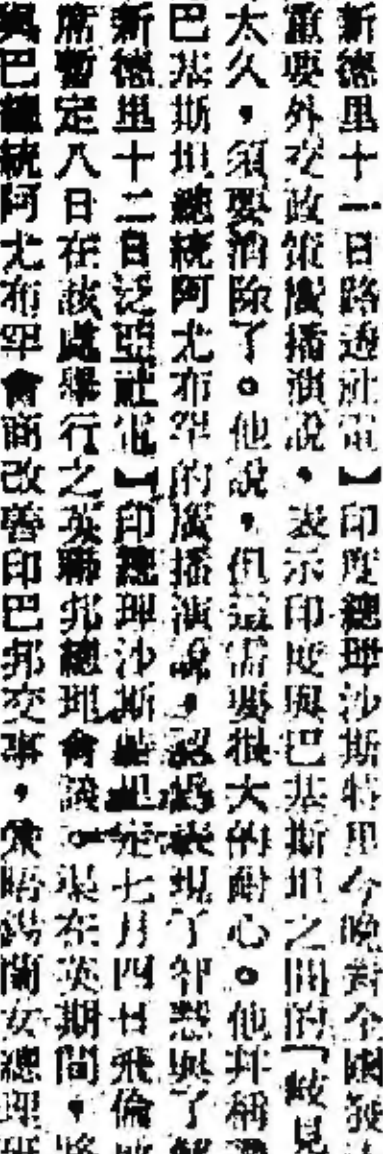 新德里十一日路透社電】印度總理沙斯特里今晚對全國發
重要外交政策廣播演說，表示印度與巴基斯坦之間的「歧見
太久，須要消除了。他說，但這需要很大的耐心。他并稱
巴基斯坦總統阿尤布罕的廣播演說，認爲表現了智慧與了解
新德里十二日泛亞社電】印總理沙斯 里定七月四日飛倫
席暫定八日在該處舉行之英聯邦總理會議。渠在英期間，將
與巴總統阿尤布罕會商改善印巴邦交事，並晤錫蘭女總理班